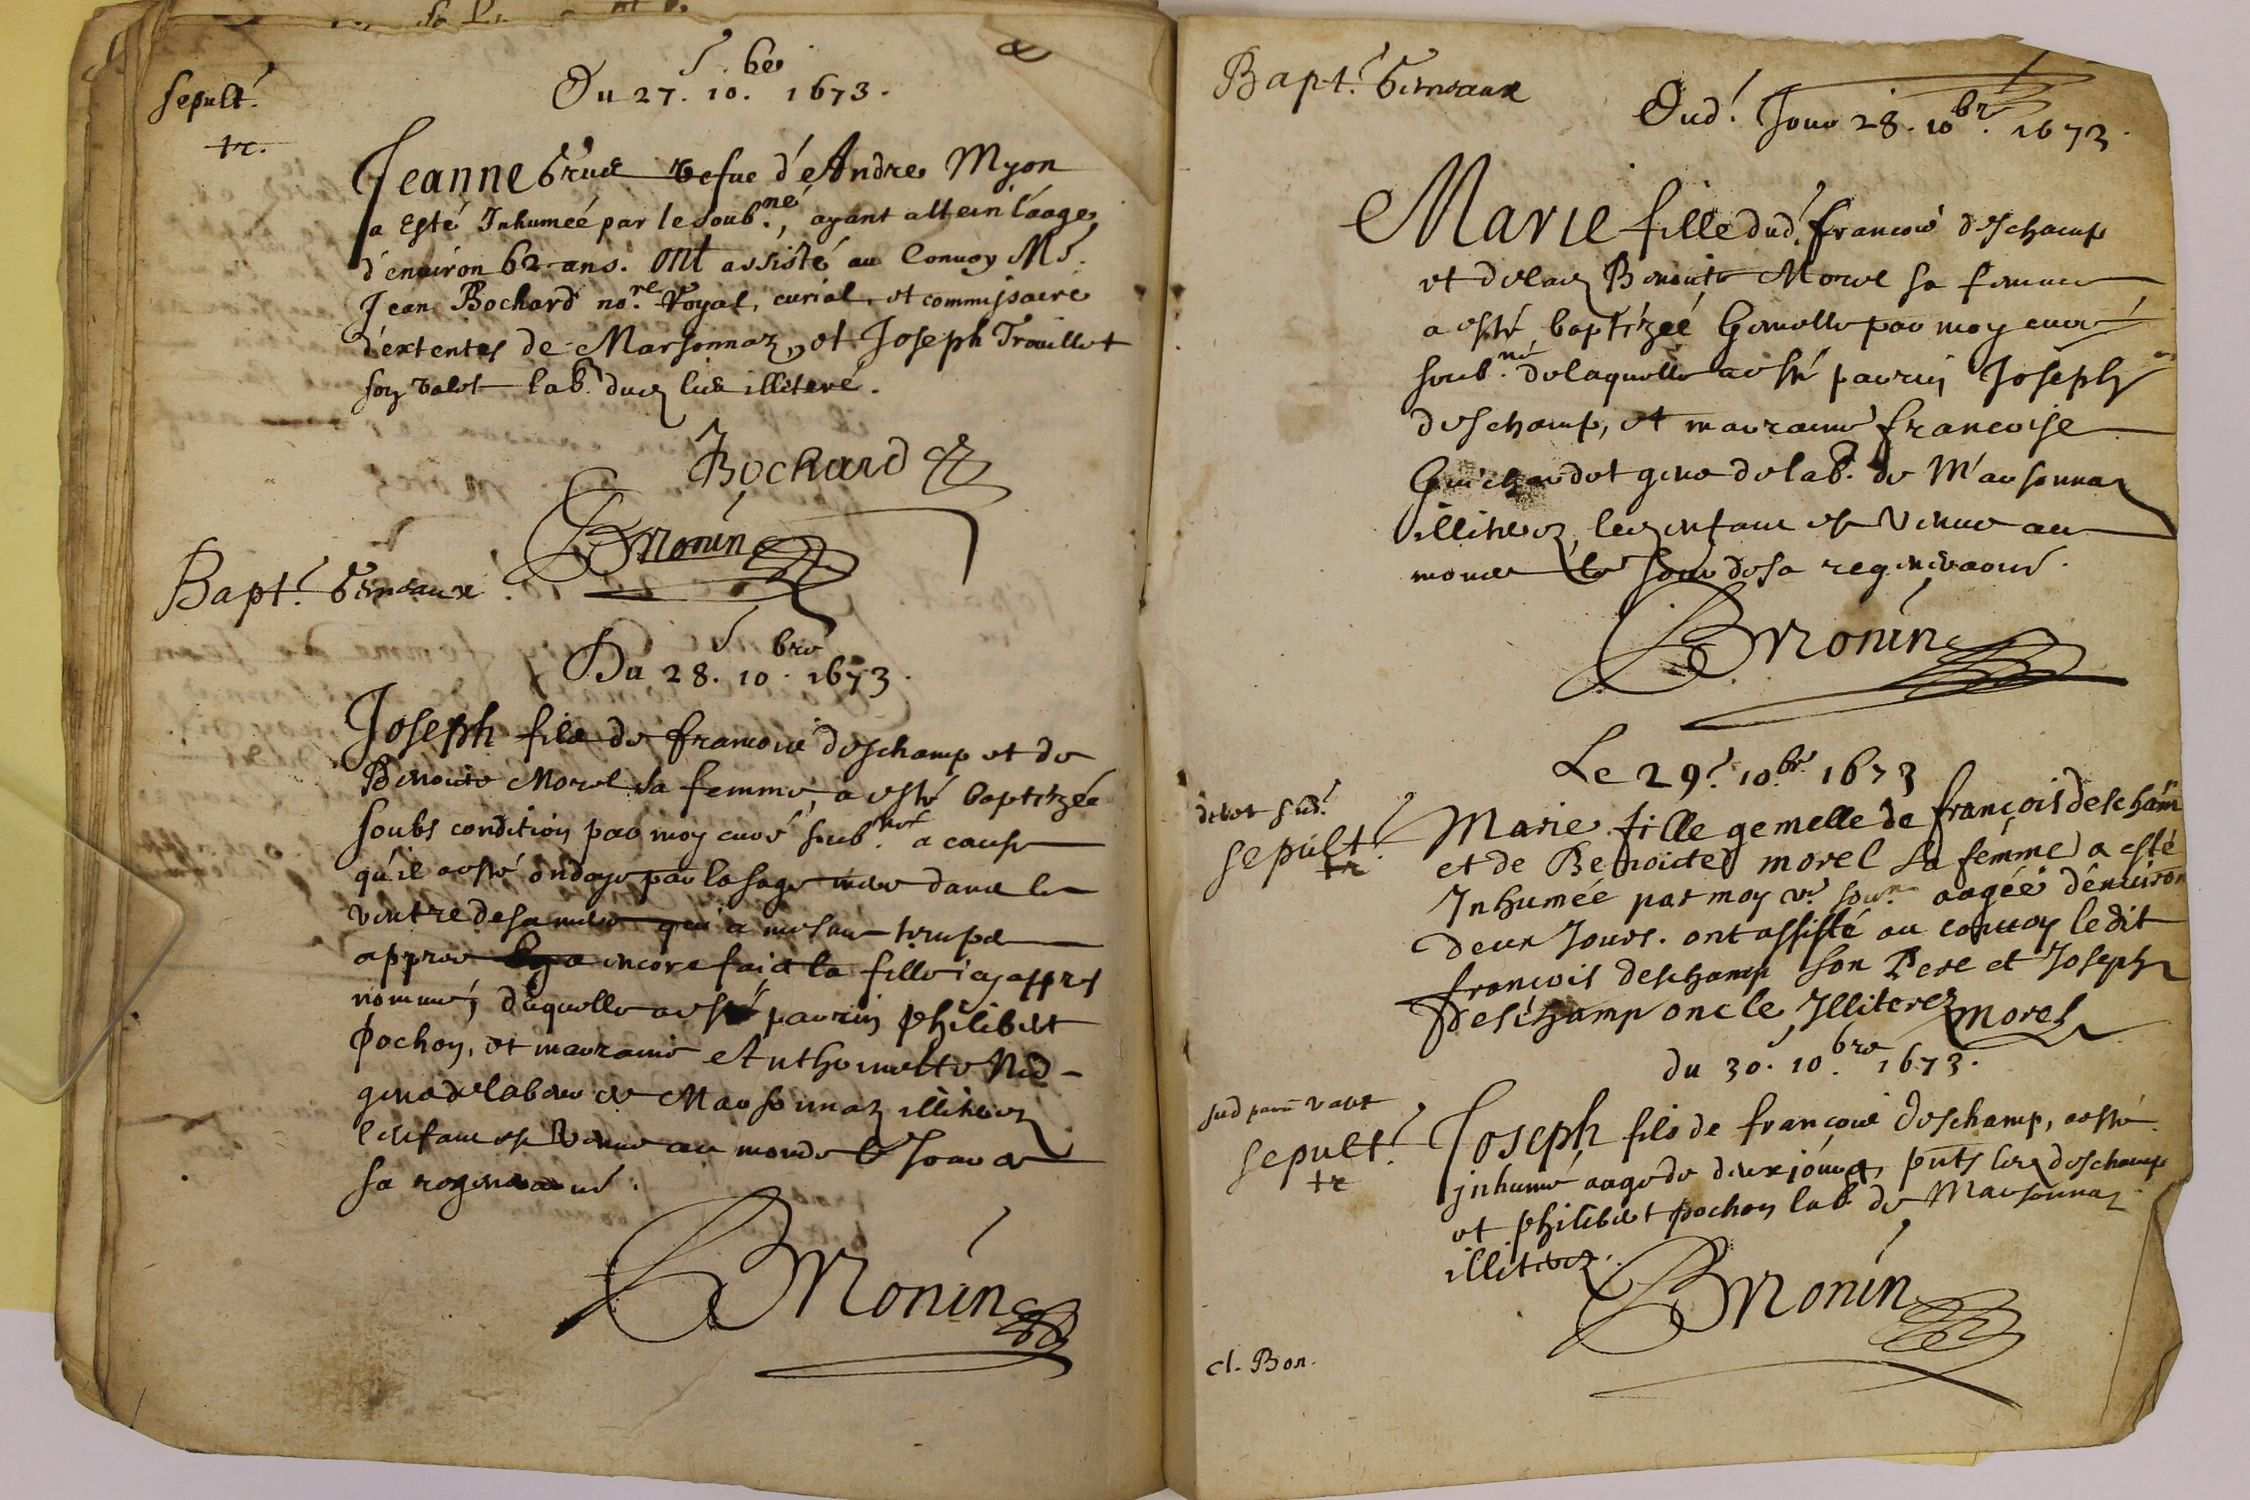 Sepult.
tr.
Du 27. 10.bre 1673.
Jeanne vefue d'e Andre Myon
a Esté Inhumeé par le soub.né, ayant attein l'aage
d'enuiron 62 ans. ont assisté au Conuoy Me.
Jean Bochard no.re Royal, curial, et commissaire
d'extentes de Marsonnaz, et Joseph Trouillot
son valet lab. dud lieu illiteré.
Bochard
BMonin
Bapt.
Du 28. 10.bre 1673.
Joseph fils de francois deschamp et de
Benoite Morel sa femme, a esté baptizée
soubs condition par moy curé soub.né a cause
qu'il a esté ondoye par la sage mere dans le
ventre de sa mere qui a mesme temps
appres encore faict la fille icy appres
nommé, duquelle a esté parrin philibert
pochon, et marraine Anthoinette
gens de labeur de Marsonnaz illiterez
l'enfant est venu au monde le Jour de
sa regeneraon.
BMonin
Bapt.
Dud. Jour 28. 10.bre 1673.
Marie fille dud. francois deschamp
et de lad Benoite Morel sa femme
a esté baptizeé Gemelle par moy curé
soub.né de laquelle a esté parrin Joseph
deschamp, et marraine francoise
Guichardot gens de lab. de Marsonnaz
illiterez, led enfant est venue au
monde le Jour de sa regeneraon.
BMonin
Le 29. 10.bre 1673
sepult.
tr
Marie fille gemelle de françois descham
et de Benoicte morel sa fémme a esté
Inhumée par moy v. sou. aagéé d'enuiron
deux Jours. ont assisté au conuoy ledit
françois deschamp son Pere et Joseph
deschamp oncle Illiterez Morel
du 30. 10.bre 1673.
sepult.
tr
Joseph fils de francois deschamp, a esté
inhumé aage de deux jours, pnts led deschamp
et philibert pochon lab. de Marsonnaz
illiterez.
BMonin
cl. Bon.